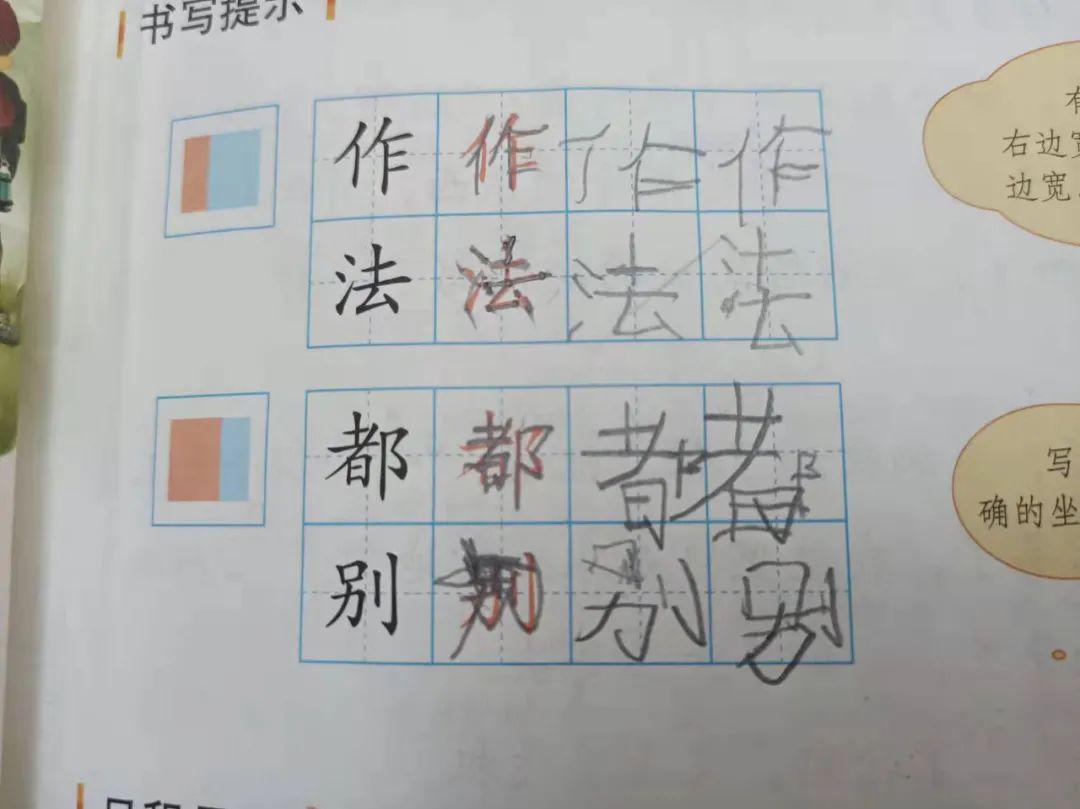 书写提示
作 作 作 作
法 法 法 法
都 都 都 都
别 别 别 别
右边宽
边宽
写
确的坐